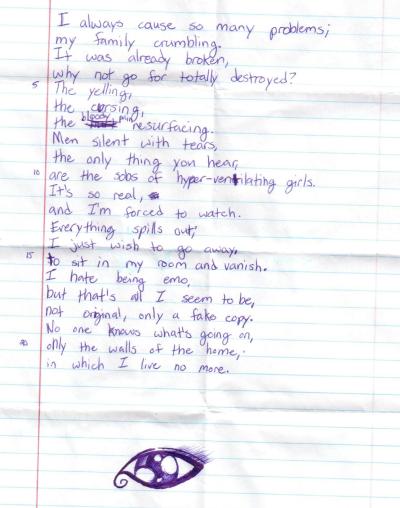 I always cause so many problems;
my family crumbling.
It was already broken,
why not go for totally destroyed?
5 The yelling,
the cursing,
the bloody pain resurfacing.
Men silent with tears,
the only thing you hear,
10 are the sobs of hyper-ventilating girls.
It's so real,
and I'm forced to watch.
Everything spills out;
I just wish to go away,
15 to sit in my room and vanish.
I hate being emo,
but that's all I seem to be,
not original, only a fake copy.
No one knows what's going on,
20 only the walls of the home,
in which I live no more.